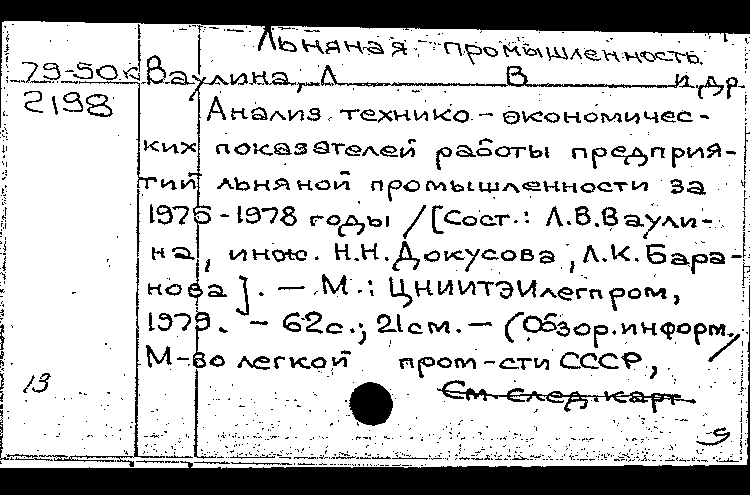 Льняная промышленность
79-50к Ваулина, Л В и др
2198 Анализ технико-экономичес-
ких показателей работы предприя-
тий льняной промышленности за
1976-1978 годы / [Сост.: Л.В.Ваули-
на, инж. Н.Н.Докусова, Л.К.Бара-
нова]. — М.: ЦНИИТЭИлегпром,
1979. - 62с.; 21см. — (Обзор.информ. /
М-во легкой пром-сти СССР,
13 См. след. карт.
9